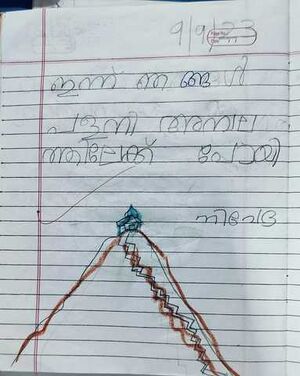 9/9/23
ഇന്ന് ഞങ്ങൾ
പളനി അമ്പല
ത്തിലേക്ക് പോയി
നിവേദ